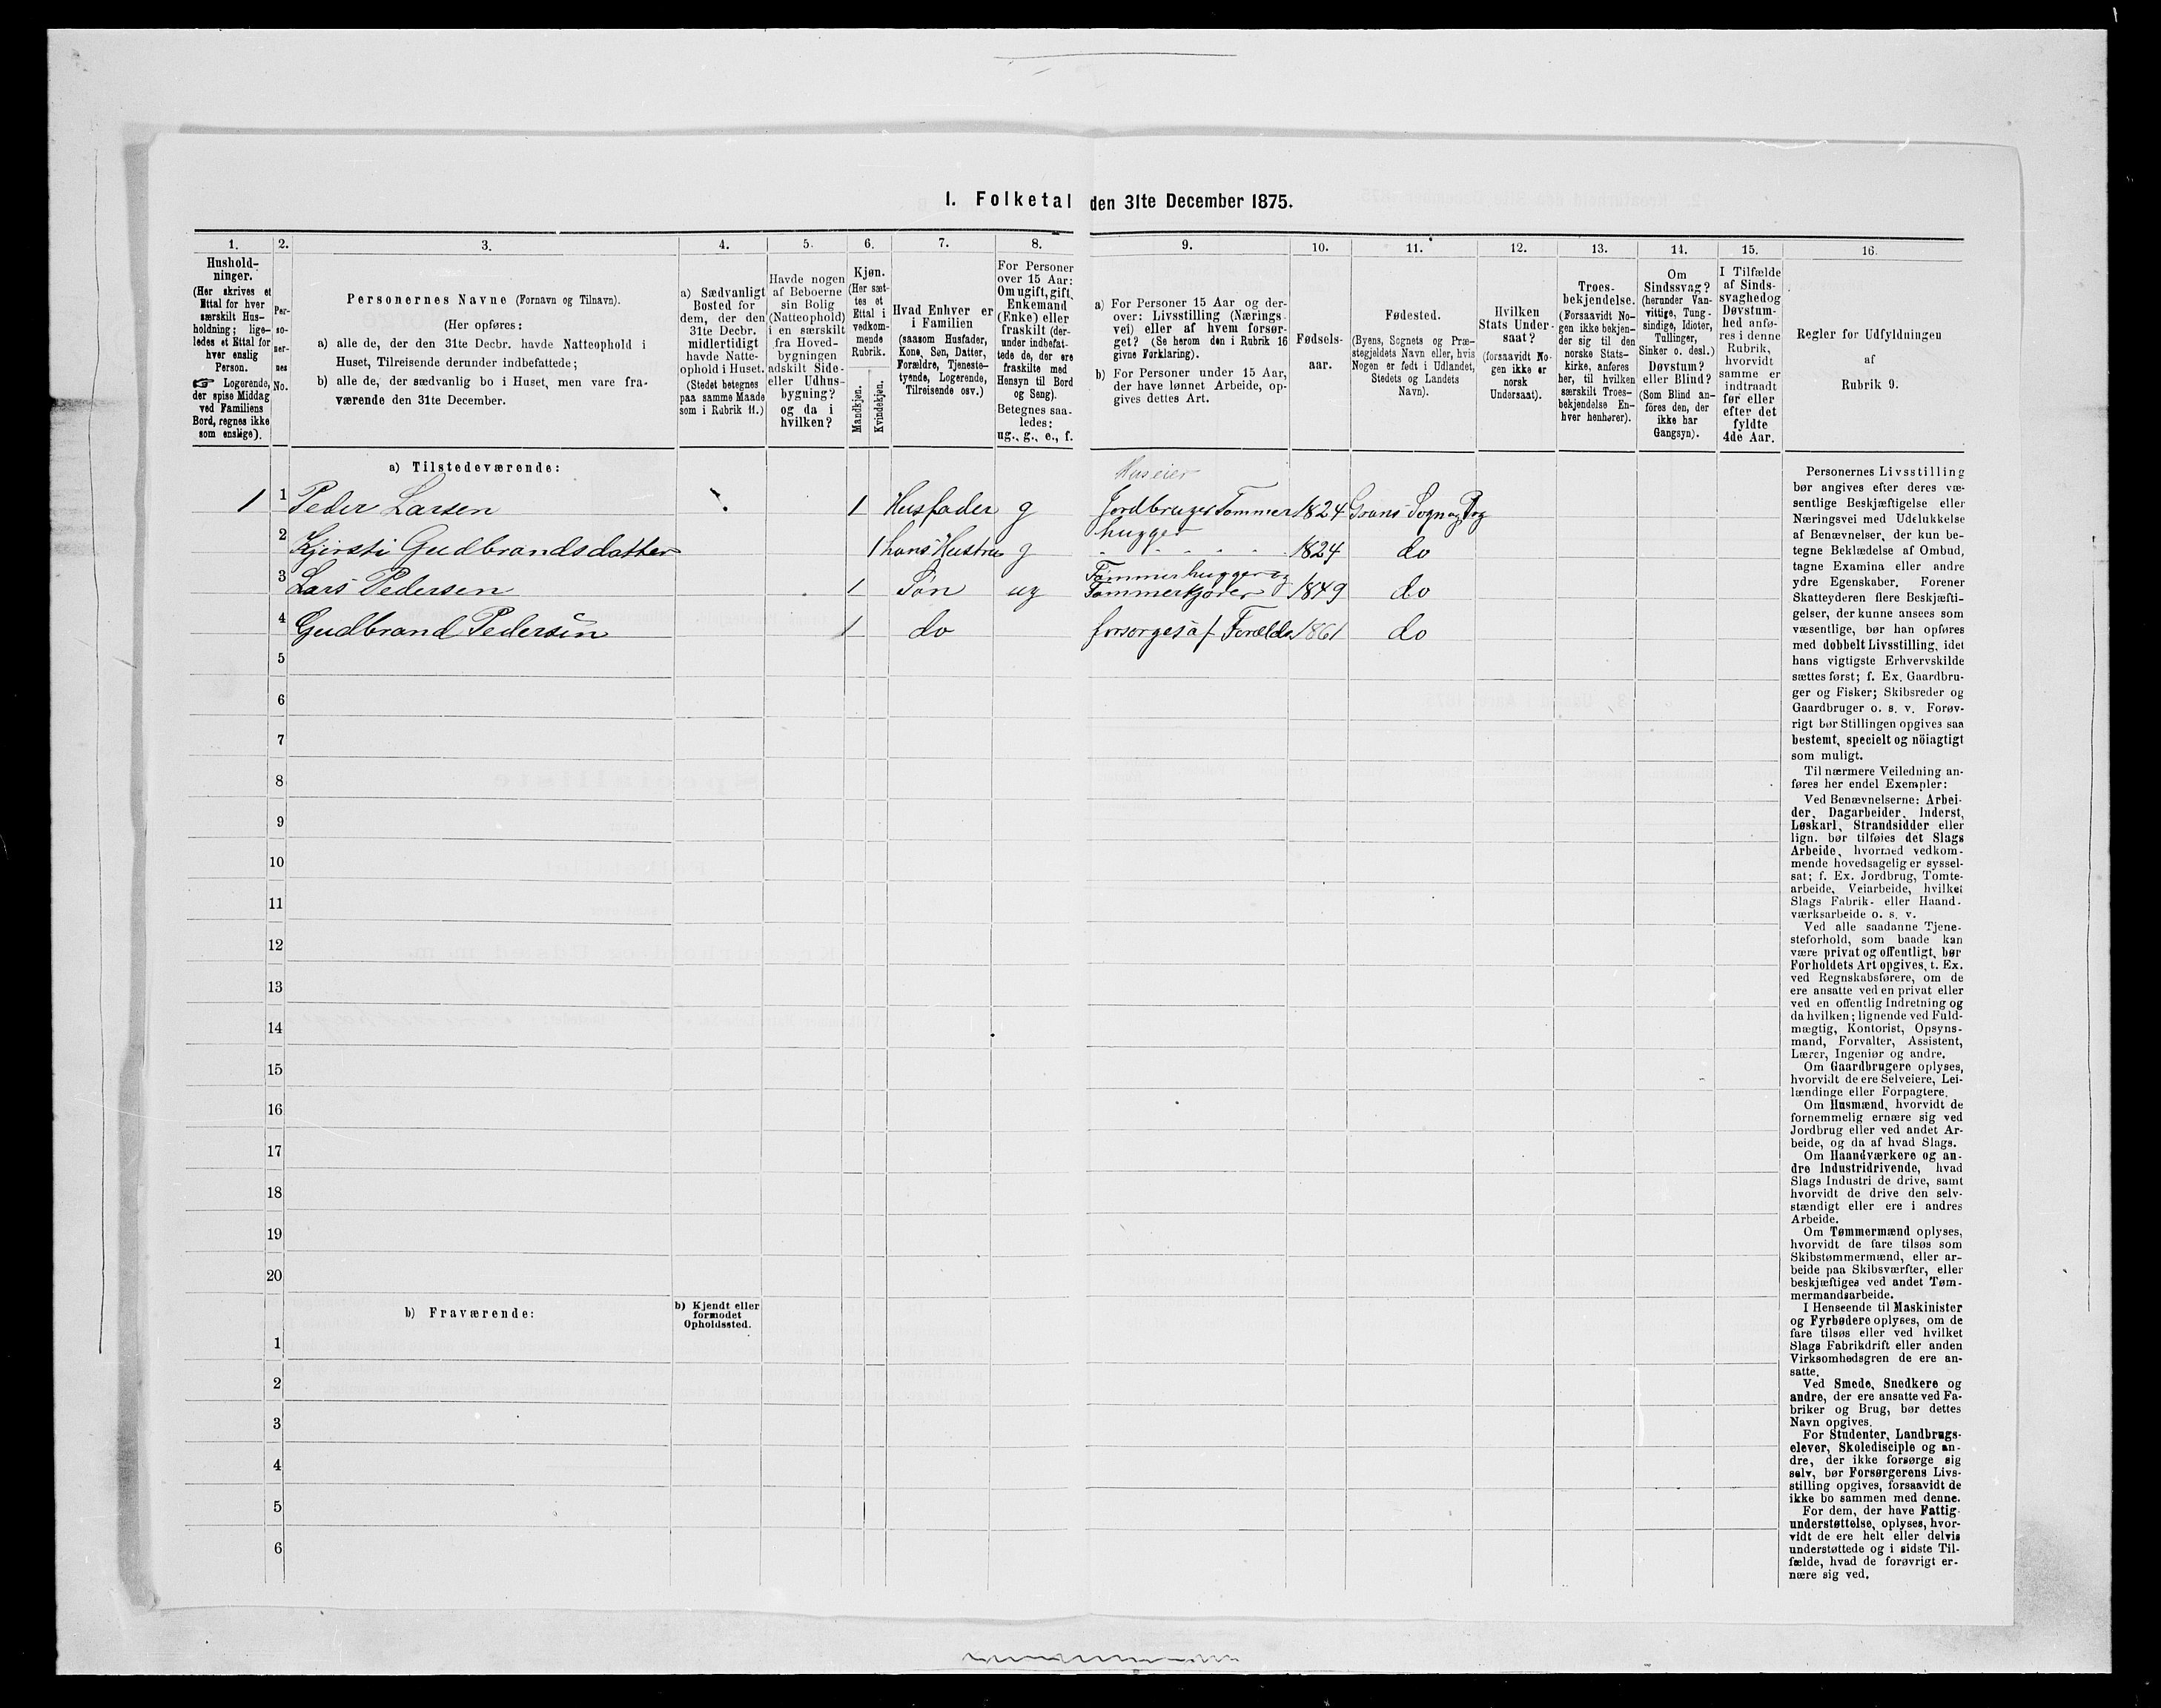 I. Folketal den 31te December 1875.
1. 2. 3. 4. 5. 6. 7. 8. 9. 10. 11. 12. 13. 14. 15. 16.
Hushold-
ninger.
(Her skrives et
Ettal for hver
særskilt Hus-
holdning; lige-
ledes et Ettal for
hver enslig
Person.
☞ Logerende,
der spise Middag
ved Familiens
Bord, regnes ikke
som enslige).
Per-
so-
ner-
nes
No.
Personernes Navne (Fornavn og Tilnavn).
(Her opføres:
a) alle de, der den 31te Decbr. havde Natteophold i
Huset, Tilreisende derunder indbefattede;
b) alle de, der sædvanlig bo i Huset, men vare fra-
værende den 31te December.
a) Sædvanligt
Bosted for
dem, der den
31te Decbr.
midlertidigt
havde Natte-
ophold i Huset.
(Stedet betegnes
paa samme Maade
som i Rubrik 11.)
Havde nogen
af Beboerne
sin Bolig
(Natteophold)
i en særskilt
fra Hoved-
bygningen
adskilt Side-
eller Udhus-
bygning?
og da i
hvilken?
Kjøn.
(Her sæt-
tes et
Ettal i
vedkom-
mende
Rubrik.
Mandkjøn.
Kvindekjøn.
Hvad Enhver er
i Familien
(saasom Husfader,
Kone, Søn, Datter,
Forældre, Tjeneste-
tyende, Logerende,
Tilreisende osv.)
For Personer
over 15 Aar:
Om ugift, gift,
Enkemand
(Enke) eller
fraskilt (der-
under indbefat-
tede de, der ere
fraskilte med
Hensyn til Bord
og Seng).
Betegnes saa-
ledes:
ug., g., e., f.
a) For Personer 15 Aar og der-
over: Livsstilling (Nærings-
vei) eller af hvem forsør-
get? (Se herom den i Rubrik 16
givne Forklaring).
b) For Personer under 15 Aar,
der have lønnet Arbeide, op-
gives dettes Art.
Fødsels-
aar.
Fødested.
(Byens, Sognets og Præ-
stegjeldets Navn eller, hvis
Nogen er født i Udlandet,
Stedets og Landets
Navn).
Hvilken
Stats Under-
saat?
(forsaavidt No-
gen ikke er
norsk
Undersaat).
Troes-
bekjendelse.
(Forsaavidt No-
gen ikke bekjen-
der sig til den
norske Stats-
kirke, anføres
her, til hvilken
særskilt Troes-
bekjendelse En-
hver henhører).
Om
Sindssvag?
(herunder Van-
vittige, Tung-
sindige, Idioter,
Tullinger,
Sinker o. desl.)
Døvstum?
eller Blind?
(Som Blind an-
føres den, der
ikke har
Gangsyn).
I Tilfælde
af Sinds-
svaghed og
Døvstum-
hed anfø-
res i denne
Rubrik,
hvorvidt
samme er
indtraadt
før eller
efter det
fyldte
4de Aar.
Regler for Udfyldningen
af
Rubrik 9.
a) Tilstedeværende:
Huseier
1 1 Peder Larsen 1 Husfader g Jordbruger Tømmer 1824 Grans Sogn og Prg
hugger
2 Kjersti Gudbrandsdatter 1 hans Hustru g " " " " " 1824 do
Tømmerhugger og
3 Lars Pedersen 1 Søn ug Tømmerkjører 1849 do
4 Gudbrand Pedersen 1 do forsørges af Forældr 1861 do
5
6
7
8
9
10
11
12
13
14
15
16
17
18
19
20
b) Fraværende:
b) Kjendt eller
formodet
Opholdssted.
1
2
3
4
5
6
Personernes Livsstilling
bør angives efter deres væ-
sentlige Beskjæftigelse eller
Næringsvei med Udelukkelse
af Benævnelser, der kun be-
tegne Beklædelse af Ombud,
tagne Examina eller andre
ydre Egenskaber. Forener
Skatteyderen flere Beskjæfti-
gelser, der kunne ansees som
væsentlige, bør han opføres
med dobbelt Livsstilling, idet
hans vigtigste Erhvervskilde
sættes først; f. Ex. Gaardbru-
ger og Fisker; Skibsreder og
Gaardbruger o. s. v. Forøv-
rigt bør Stillingen opgives saa
bestemt, specielt og nöiagtigt
som muligt.
Til nærmere Veiledning an-
føres her endel Exempler:
Ved Benævnelserne: Arbei-
der, Dagarbeider, Inderst,
Løskarl, Strandsidder eller
lign. bør tilføies det Slags
Arbeide, hvormed vedkom-
mende hovedsagelig er syssel-
sat; f. Ex. Jordbrug, Tomte-
arbeide, Veiarbeide, hvilket
Slags Fabrik- eller Haand-
værksarbeide o. s. v.
Ved alle saadanne Tjene-
steforhold, som baade kan
være privat og offentligt, bør
Forholdets Art opgives, t. Ex.
ved Regnskabsførere, om de
ere ansatte ved en privat eller
ved en offentlig Indretning og
da hvilken; lignende ved Fuld-
mægtig, Kontorist, Opsyns-
mand, Forvalter, Assistent,
Lærer, Ingeniør og andre.
Om Gaardbrugere oplyses,
hvorvidt de ere Selveiere, Lei-
lændinge eller Forpagtere.
Om Husmænd, hvorvidt de
fornemmelig ernære sig ved
Jordbrug eller ved andet Ar-
beide, og da af hvad Slags.
Om Haandværkere og an-
dre Industridrivende, hvad
Slags Industri de drive, samt
hvorvidt de drive den selv-
stændigt eller ere i andres
Arbeide.
Om Tømmermænd oplyses,
hvorvidt de fare tilsøs som
Skibstømmermænd, eller ar-
beide paa Skibsværfter, eller
beskjæftiges ved andet Tøm-
mermandsarbeide.
I Henseende til Maskinister
og Fyrbødere oplyses, om de
fare tilsøs eller ved hvilket
Slags Fabrikdrift eller anden
Virksomhedsgren de ere an-
satte.
Ved Smede, Snedkere og
andre, der ere ansatte ved Fa-
briker og Brug, bør dettes
Navn opgives.
For Studenter, Landbrugs-
elever, Skoledisciple og an-
dre, der ikke forsørge sig
selv, bør Forsørgerens Livs-
stilling opgives, forsaavidt de
ikke bo sammen med denne.
For dem, der have Fattig-
understøttelse, oplyses, hvor-
vidt de ere helt eller delvis
understøttede og i sidste Til-
fælde, hvad de forøvrigt er-
nære sig ved.